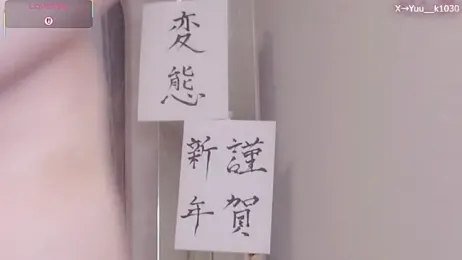 X→Yuu__k1030
変態
謹賀
新年